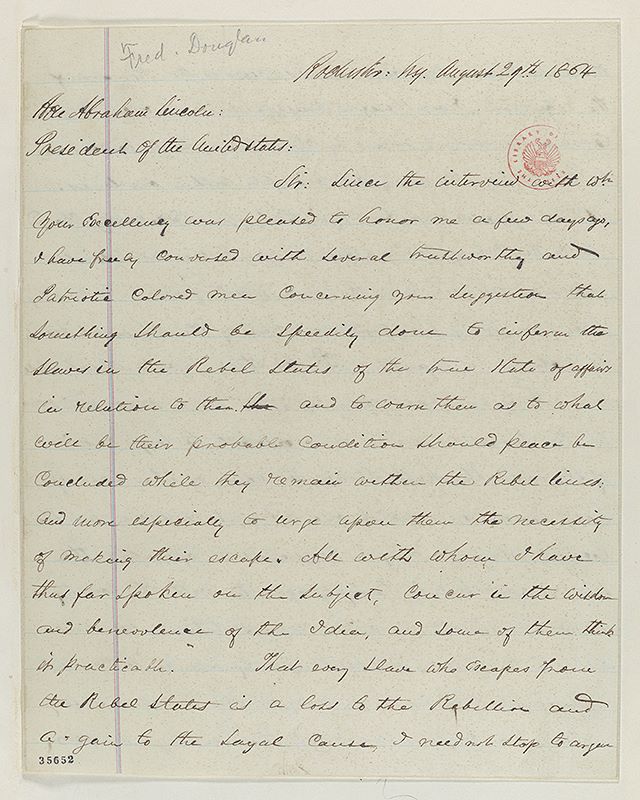 Fred. Douglass
Rochester: N.y. August 29th 1864
Hon Abraham Lincoln:
President of the United States:
LIBRARY OF
Sir: Since the interview with wh.
Your Excellency was pleased to honor me a few days ago,
I have freely conversed with several trustworthy and
Patriotic colored men concerning your suggestion that
something should be speedily done to inform the
slaves in the Rebel States of the true state of affairs
in relation to them and to warn them as to what
will be their probable condition should peace be
concluded while they remain within the Rebel lines:
and more especially to urge upon them the necessity
of making their escape. All with whom I have
thus far spoken on the subject, concur in the wisdom
and benevolence of the Idea, and some of them think
it practicable. That every slave who escapes from
the Rebel States is a loss to the Rebellion and
a gain to the Loyal Cause, I need not stop to argue
35652